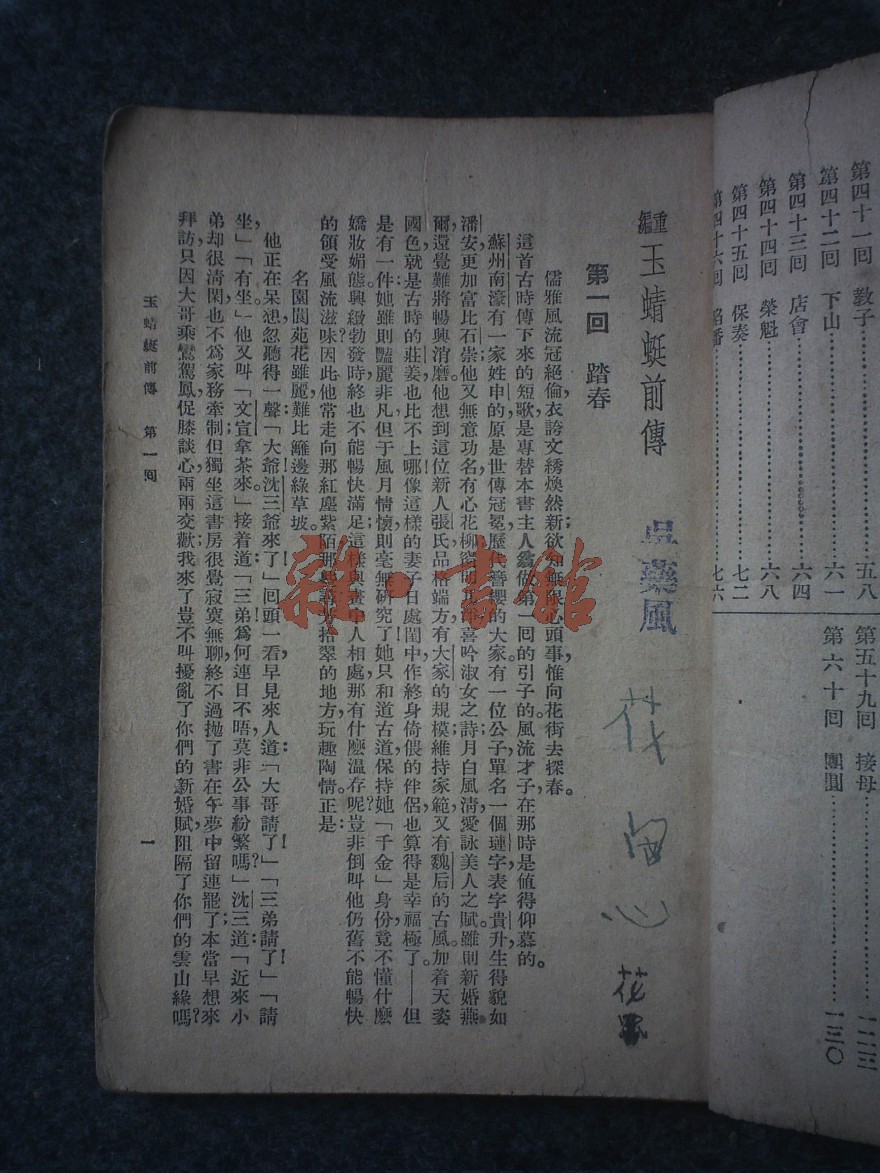 第四十一回 教子 五八
第四十二回 下山 六一
第四十三回 店會 六四
第四十四回 榮魁 六八
第四十五回 保奏 七二
第四十六回 七六
第五十九回 接母
第六十回 團圓 一三〇
重編 玉蜻蜓前傳
吳藥風
花
花
第一回 踏春
儒雅風流冠絕倫，衣誇文綉煥然新；欲知無限心頭事，惟向花街去探春。
這首古時傳下來的短歌，是專替本書主人翁做第一回的引子的。風流才子，在那時是値得仰慕的。
蘇州南濠有一家姓申的，原是世傳冠冕，歷代簪纓的大家。有一位公子，單名一個璉字，表字貴升，生得貌如
潘安，更加富比石崇；他又無意功名，有心花柳，喜吟淑女之詩；月白風淸，愛詠美人之賦。雖則新婚燕
爾，還覺難將暢興消磨。他想到這位新人張氏，品格端方，有大家的規模，維持家範，又有魏后的古風。加着天姿
國色，就是古時的莊姜，也比不上哪！像這樣的妻子，日處閨中，作終身倚偎的伴侶，也算得是幸福極了。——但
是有一件：她雖則豔麗非凡，但于風月情懷，則毫無硏究了；她只和道古道，保持她「千金」身份，竟不懂什麼
嬌妝媚態。興緻勃發時，終也不能暢快滿足；這樣與畫中人相處，那有什麼溫存呢？豈非倒叫他仍舊不能暢快
的領受風流滋味？因此他常走向那紅塵紫陌，那些尋芳拾翠的地方，玩趣陶情。正是：
名園閬苑花雖麗，難比籬邊綠草坡。
他正在呆想，忽聽得一聲：「大爺，沈三爺來了！」回頭一看，早見來人道：「大哥請了！」「三弟請了！」「請
坐！」「有坐。」他又叫：「文宣拿茶來。」接着道：「三弟爲何連日不晤，莫非公事紛繁嗎？」沈三道：「近來小
弟却很淸閑，也不爲家務牽制，但獨坐這書房，很覺寂寞無聊，終不過拋了書在午夢中留連罷了；本當早想來
拜訪，只因大哥乘鸞駕鳳，促膝談心，兩兩交歡，我來了豈不叫擾亂了你們的新婚賦，阻隔了你們的雲山緣嗎？
玉蜻蜓前傳 第一回 一
雜·書館